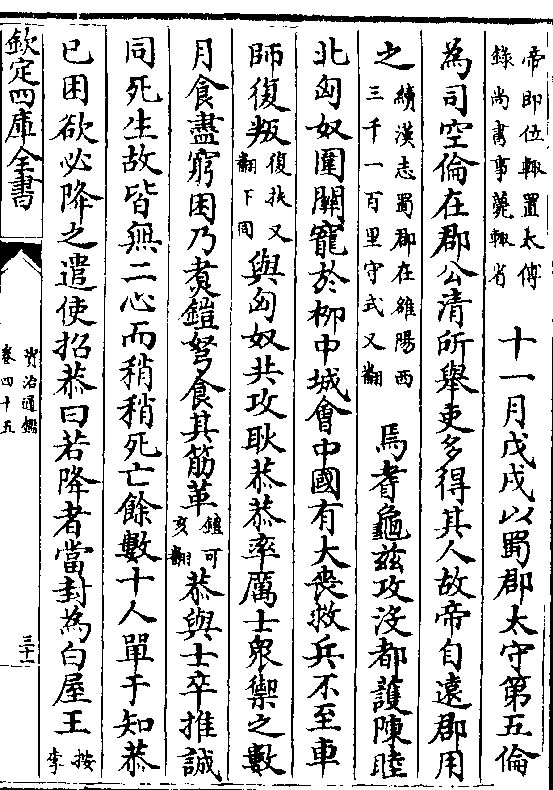 帝即位輒置太傅
錄尚書事薨輒省
十一月戊戌以蜀郡太守第五倫
為司空倫在郡公清所舉吏多得其人故帝自遠郡用
之
續漢志蜀郡在雒陽西
三千一百里守式又翻
焉耆龜兹攻沒都護陳睦
北匈奴圍關寵於柳中城會中國有大喪救兵不至車
師復叛
復扶又
翻下同
與匈奴共攻耿恭恭率厲士衆禦之數
月食盡窮困乃煑鎧弩食其筋革
鎧可
亥翻
恭與士卒推誠
同死生故皆無二心而稍稍死亡餘數十人單于知恭
已困欲必降之遣使招恭曰若降者當封為白屋王
按
李
欽定四庫全書
資治通鑑
卷四十五
三十一